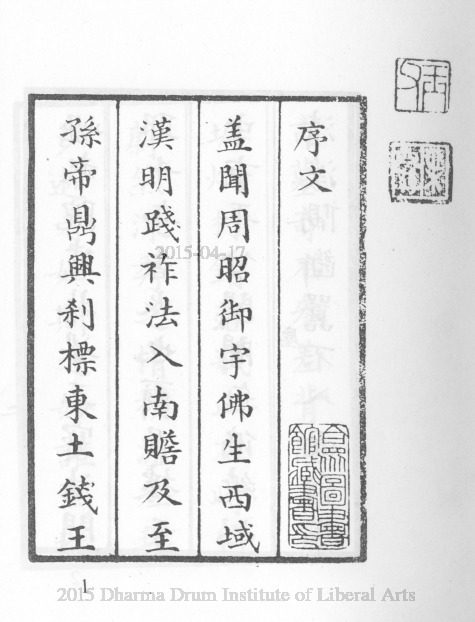 序文
盖聞周昭御宇佛生西域
漢明踐祚法入南贍及至
孫帝鼎興刹標東土錢王
2015-04-17
1
2015 Dharma Drum Institute of Liberal Arts